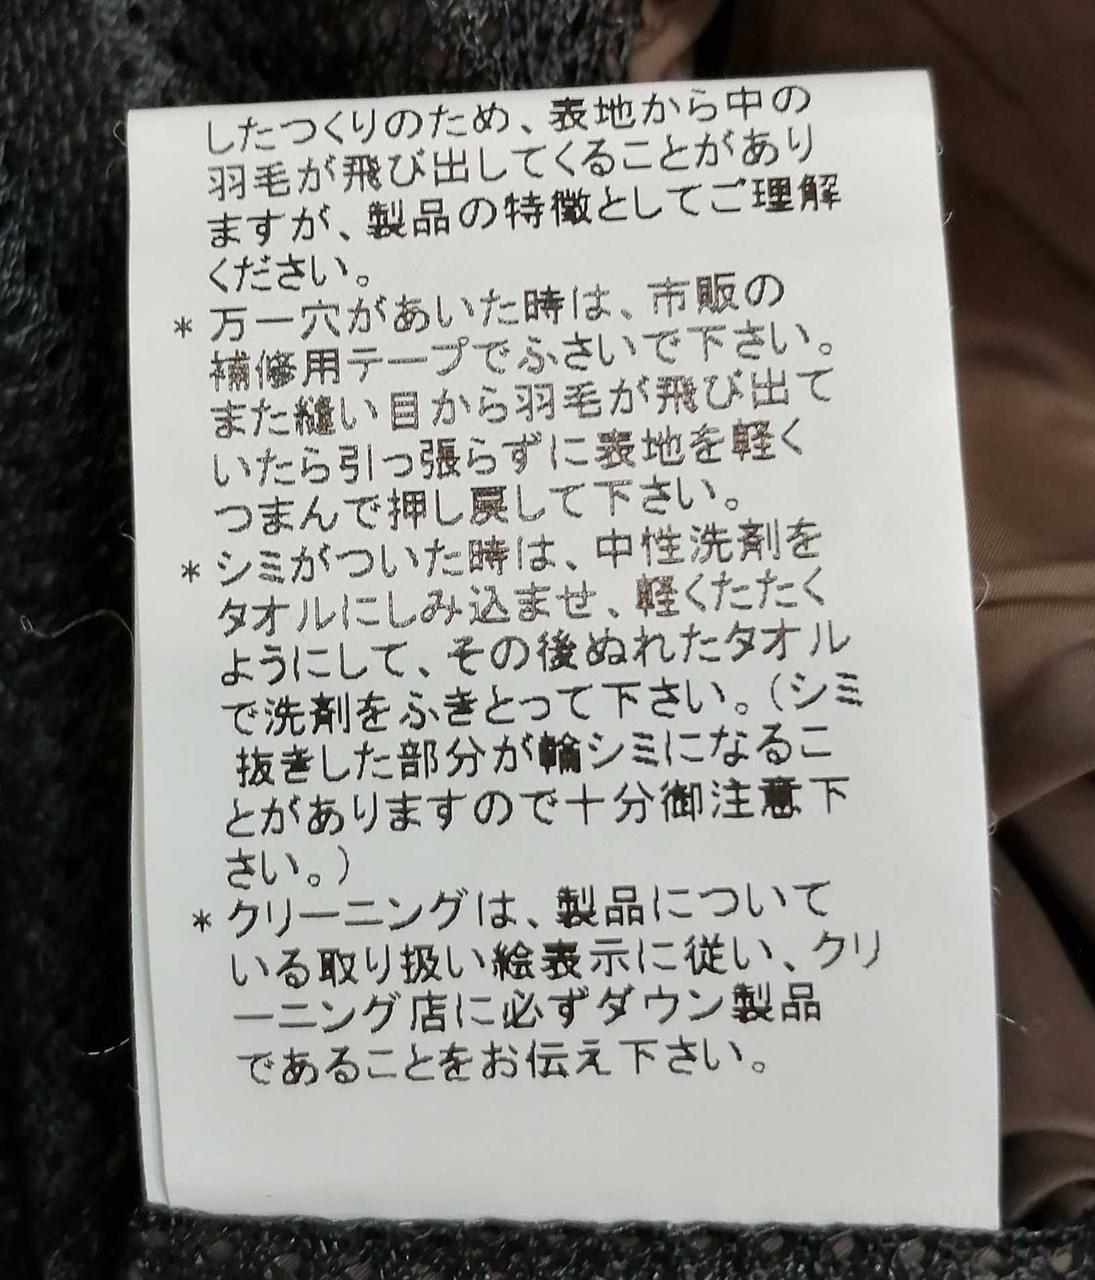 したつくりのため、表地から中の
羽毛が飛び出してくることがあり
ますが、製品の特徴としてご理解
ください。
* 万一穴があいた時は、市販の
補修用テープでふさいで下さい。
また縫い目から羽毛が飛び出て
いたら引っ張らずに表地を軽く
つまんで押し戻して下さい。
* シミがついた時は、中性洗剤を
タオルにしみ込ませ、軽くたたく
ようにして、その後ぬれたタオル
で洗剤をふきとって下さい。(シミ
抜きした部分が輪シミになるこ
とがありますので十分御注意下
さい。)
* クリーニングは、製品について
いる取り扱い絵表示に従い、クリ
ーニング店に必ずダウン製品
であることをお伝え下さい。